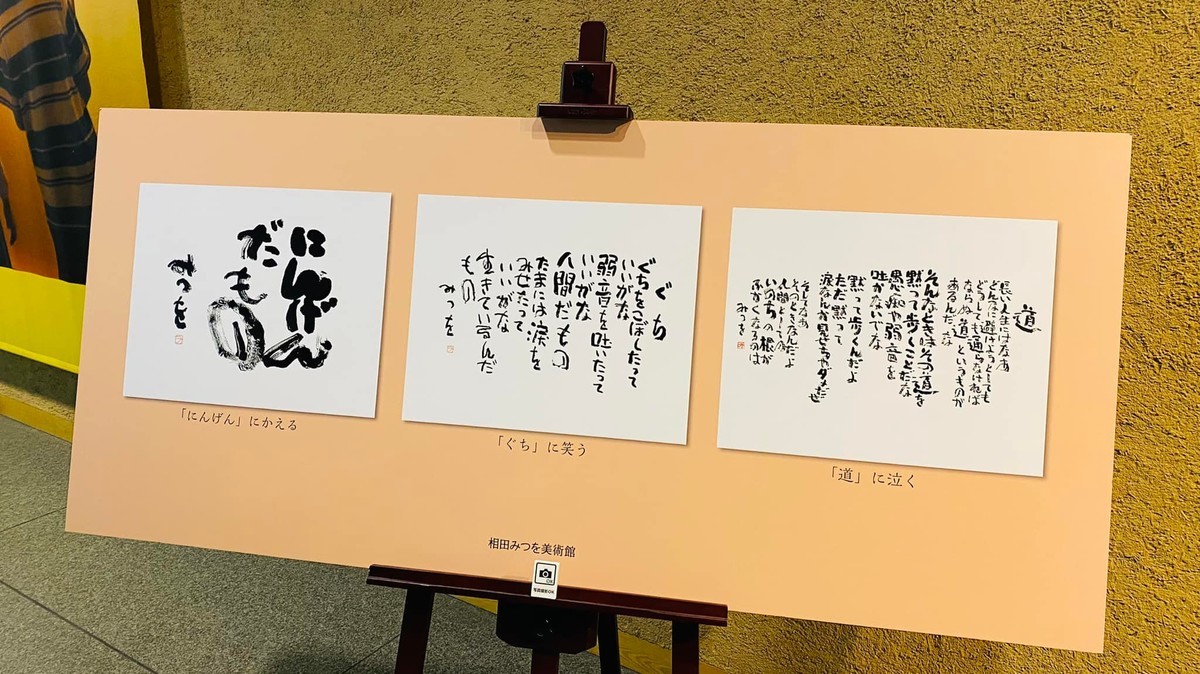 にんげん
だもの
みつを
「にんげん」にかえる
ぐち
ぐちをこぼしたって
いいがな
弱音を吐いたって
いいがな
人間だもの
たまには涙を
みせたって
いいがな
生きているんだ
もの
みつを
「ぐち」に笑う
道
長い人生にはなあ
どんなに避けようとしても
どうしても通らなければ
ならぬ道というものが
あるんだな
そんなときはその道を
黙って歩くことだな
愚痴や弱音を
吐かないでな
黙って歩くんだよ
ただ黙って
涙なんか見せちゃダメだぜ
そしてなあ
そのときなんだよ
人間としての
いのちの根が
ふかくなるのは
みつを
「道」に泣く
相田みつを美術館
OK
写真撮影OK